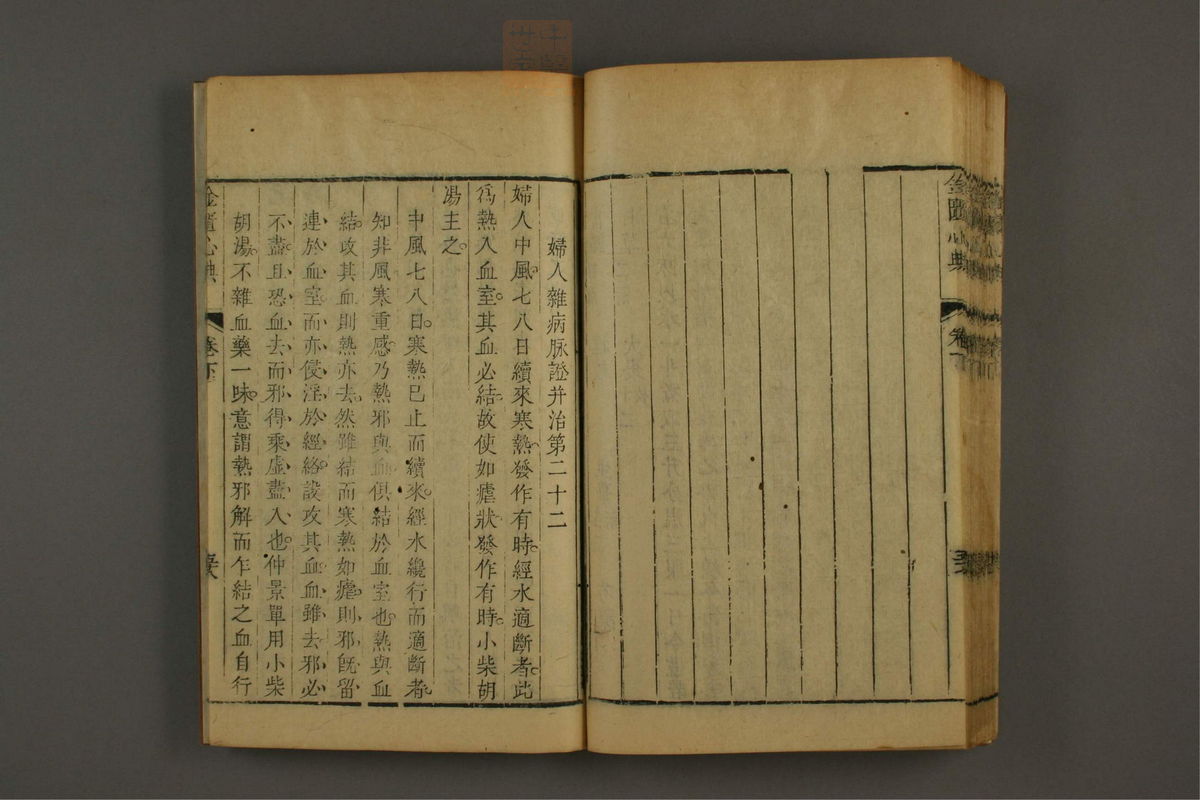 金匱心典
卷下
婦人雜病脉證并治第二十二
婦人中風七八日續來寒熱發作有時經水適斷者此
爲熱入血室其血必結故使如瘧狀發作有時小柴胡
湯主之
中風七八日寒熱已止而續來經水纔行而適斷者
知非風寒重感乃熱邪與血俱結於血室也熱與血
結攻其血則熱亦去然雖結而寒熱如瘧則邪旣留
連於血室而亦侵淫於經絡設攻其血血雖去邪必
不盡且恐血去而邪得乘虛盡入也仲景單用小柴
胡湯不雜血藥一味意謂熱邪解而乍結之血自行
金匱心典
卷下